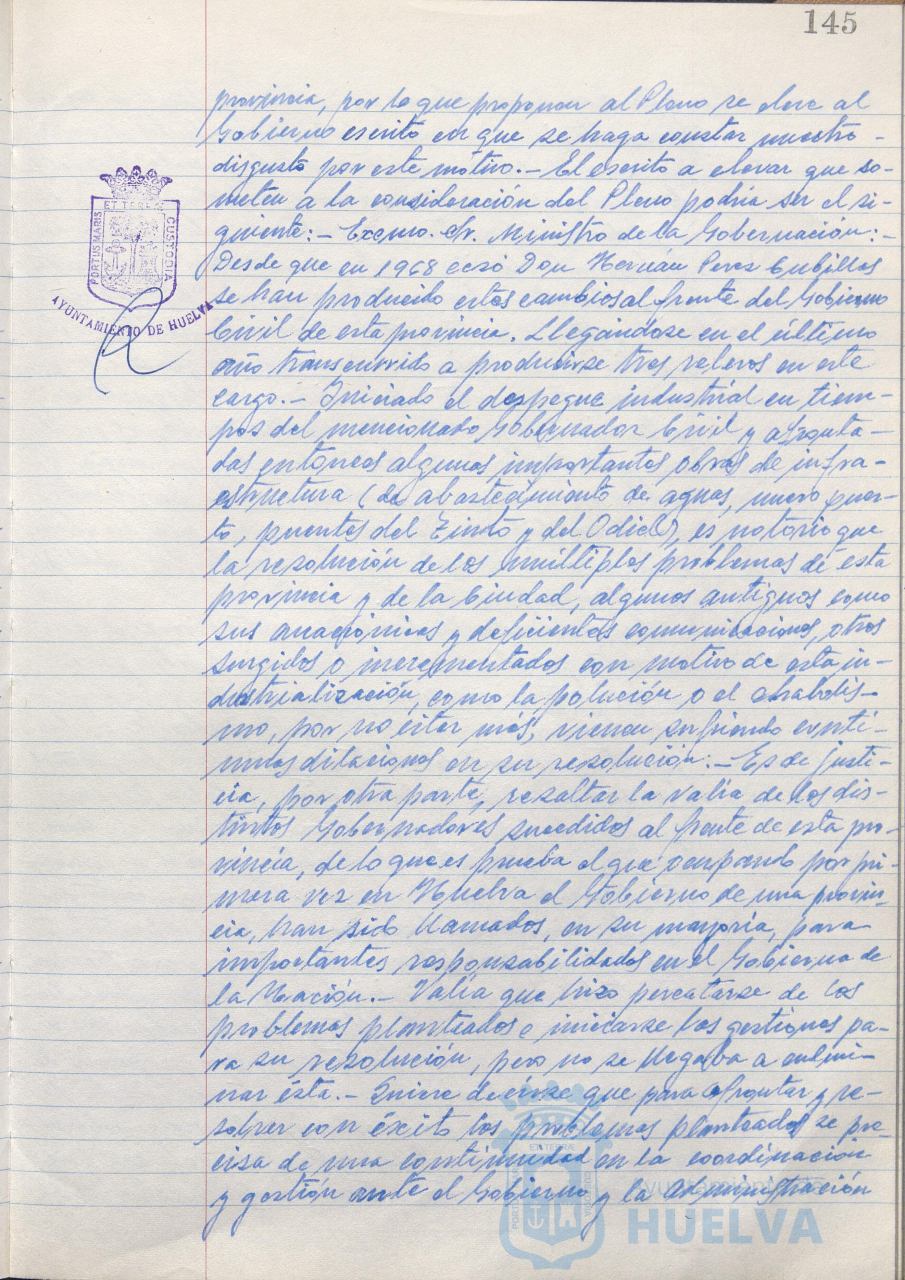 145
provincia, por lo que proponen al Pleno se eleve al
Gobierno escrito en que se haga constar nuestro
disgusto por este motivo.- El escrito a elevar que so-
meten a la consideración del Pleno podría ser el si-
guiente:- Excmo. Sr. Ministro de la Gobernación:-
Desde que en 1968 cesó Don Hernán Perez Cubillas
se han producido estos cambios al frente del Gobierno
Civil de esta provincia. Llegándose en el último
año transcurrido a producirse tres relevos en este
cargo.- Iniciado el despegue industrial en tiem-
pos del mencionado Gobernador Civil y
das entonces algunas importantes obras de infra-
estructura (de abastecimiento de aguas, nuevo puer-
to, puentes del Tinto y del Odiel), es notorio que
la resolución de los múltiples problemas de esta
provincia y de la Ciudad, algunos antiguos como
sus anacrónicas y deficientes comunicaciones, otros
surgidos o incrementados con motivo de esta in-
dustrialización, como la polución o el chabolis-
mo, por no citar más, vienen sufriendo conti-
nuas dilaciones en su resolución.- Es de justi-
cia, por otra parte, resaltar la valía de los dis-
tintos Gobernadores sucedidos al frente de esta pro-
vincia, de lo que es prueba el que ocupando por pri-
mera vez en Huelva el Gobierno de una provin-
cia, han sido llamados, en su mayoría, para
importantes responsabilidades en el Gobierno de
la Nación.- Valía que hizo percatarse de los
problemas planteados e iniciarse las gestiones pa-
ra su resolución, pero no se llegaba a culmi-
nar ésta.- que para afrontar y re-
solver con éxito los problemas planteados se pre-
cisa de una continuidad en la coordinación
y gestión ante el Gobierno y la administración
PORTUS MARIS ET TERRAE CUSTODIA
AYUNTAMIENTO DE HUELVA
HUELVA